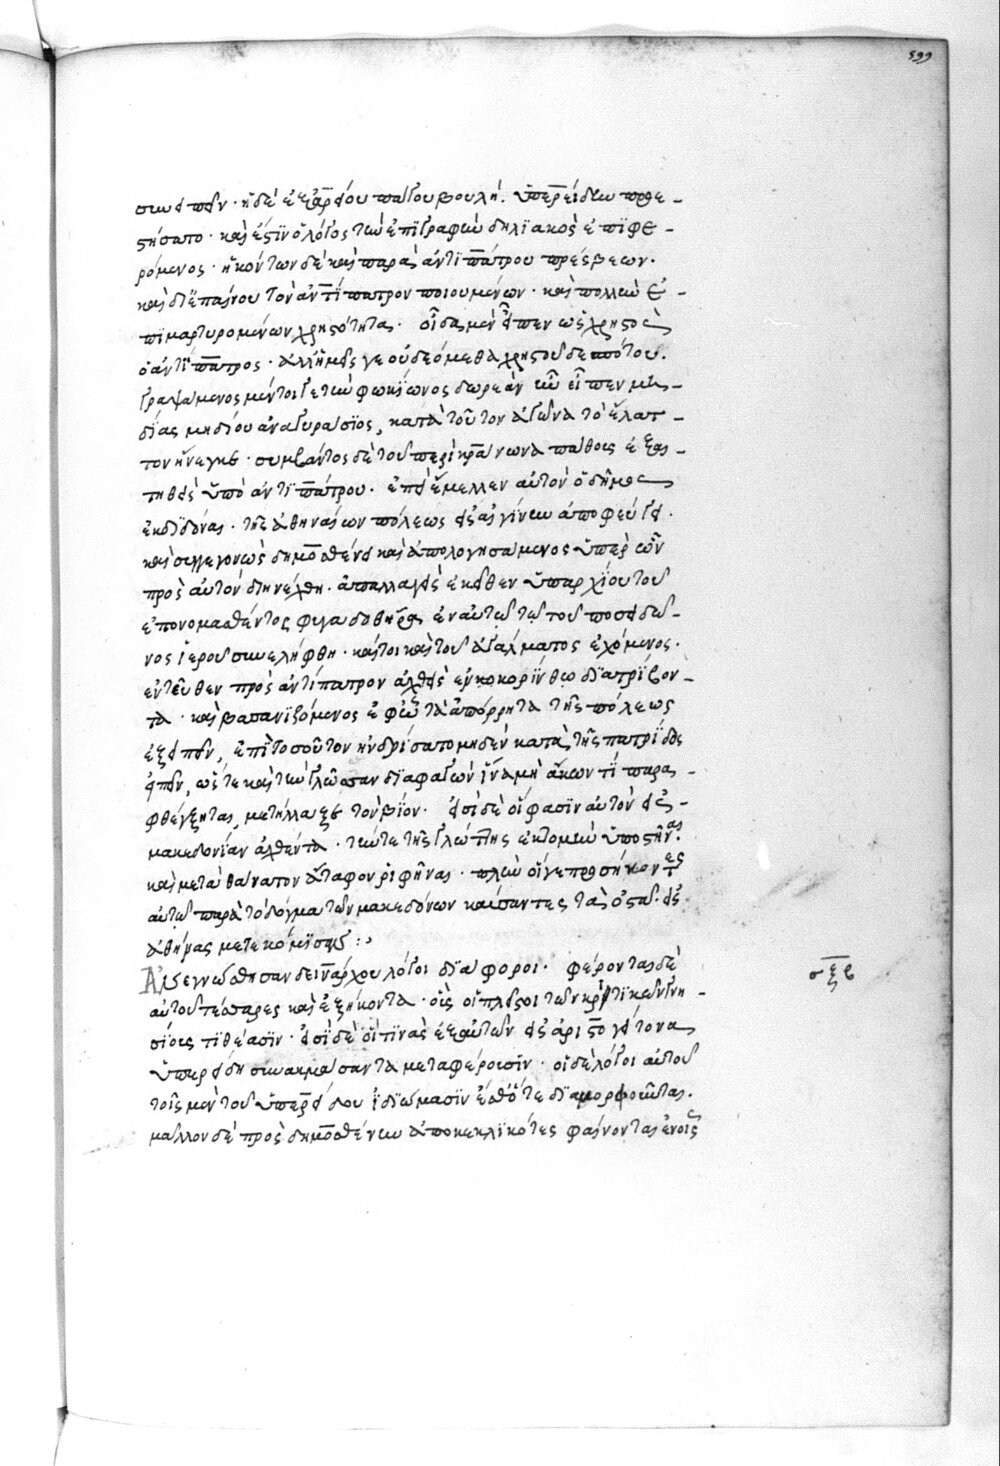 599
συνειπεῖν· ἡ δὲ ἐξ ἀρείου πάγου βουλή. ὑπερείδην προε-
στήσατο· καὶ ἔστιν ὁ λόγος τῶν ἐπιγραφὴν δηλιακὸς ἐπιφε-
ρόμενος· ἡκόντων δὲ καὶ παρὰ ἀντιπάτρου πρέσβεων.
καὶ δι' ἐπαίνου τὸν ἀντίπατρον ποιουμένων· καὶ πολλὴν ἐ-
πιμαρτυρομένων χρηστότητα· οἶδα μὲν εἶπεν ὡς χρηστὸς
ὁ ἀντίπατρος· ἀλλ' ἡμεῖς γε οὐ δεόμεθα χρηστοῦ δεσπότου.
γραψάμενος μέντοιγε τὴν φωκίωνος δωρεὰν ἣν εἶπεν μει-
δίας μηδίου ἀναγυράσιος, κατὰ τοῦτον ἀγῶνα τὸ ἔλατ-
τον ἤνεγκε· συμβάντος δὲ τοῦ περὶ κράνωνα πάθους ἐξαι-
τηθεὶς ὑπὸ ἀντιπάτρου. ἐπεὶ ἔμελλεν αὐτὸν ὁ δῆμος
ἐκδιδόναι. τῆς ἀθηναίων πόλεως εἰς αἴγιναν ἀποφεύγει.
καὶ συγγεγονὼς δημοσθένει καὶ ἀπολογησάμενος ὑπὲρ ὧν
πρὸς αὐτὸν διηνέχθη. ἀπαλλαγεὶς ἐκεῖθεν ὑπαρχίου τοῦ
ἐπονομασθέντος φυγαδοθήρα ἐν αὐτῷ τῷ τοῦ ποσειδῶ-
νος ἱερῷ συνελήφθη· καίτοι καὶ τοῦ ἀγάλματος ἐχόμενος.
ἐντεῦθεν πρὸς ἀντίπατρον ἀχθεὶς ἐν κορίνθῳ διατρίβον-
τα· καὶ βασανιζόμενος ἐφ' ᾧ τὰ ἀπόρρητα τῆς πόλεως
ἐξειπεῖν, ἐπὶ τοσοῦτον ἠνδρίσατο μηδὲν κατὰ τῆς πατρίδος
εἰπεῖν, ὥστε καὶ τὴν γλῶσσαν διαφαγὼν ἵνα μὴ ἄκων τι παρα-
φθέγξηται, μετήλλαξε τὸν βίον· εἰσὶ δὲ οἵ φασιν αὐτὸν εἰς
μακεδονίαν ἀχθέντα· τήν τε τῆς γλώττης ἐκτομὴν ὑποστῆναι.
καὶ μετὰ θάνατον ἄταφον ῥιφῆναι· πλὴν οἵ γε προσήκοντες
αὐτῷ παρὰ τὸ δόγμα τῶν μακεδόνων καύσαντες τὰ ὀστᾶ· εἰς
ἀθήνας μετεκόμισαν :,
Ἀνεγνώσθησαν δεινάρχου λόγοι διάφοροι. φέρονται δὲ
αὐτοῦ τέσσαρες καὶ ἑξήκοντα· οὓς οἱ πλείους τῶν κριτικῶν γνη-
σίους τιθέασιν· εἰσὶ δὲ οἵ τινας ἐξ αὐτῶν εἰς ἀριστογείτονα
ὑπερείδῃ συνακμάσαντα μεταφέρουσιν· οἱ δὲ λόγοι αὐτοῦ
τοῖς μὲν τοῦ ὑπερείδου ἰδιώμασιν ἔσθ' ὅτε διαμορφοῦνται.
μᾶλλον δὲ πρὸς δημοσθένην ἀποκεκλικότες φαίνονται ἐν οἷς
σξβ